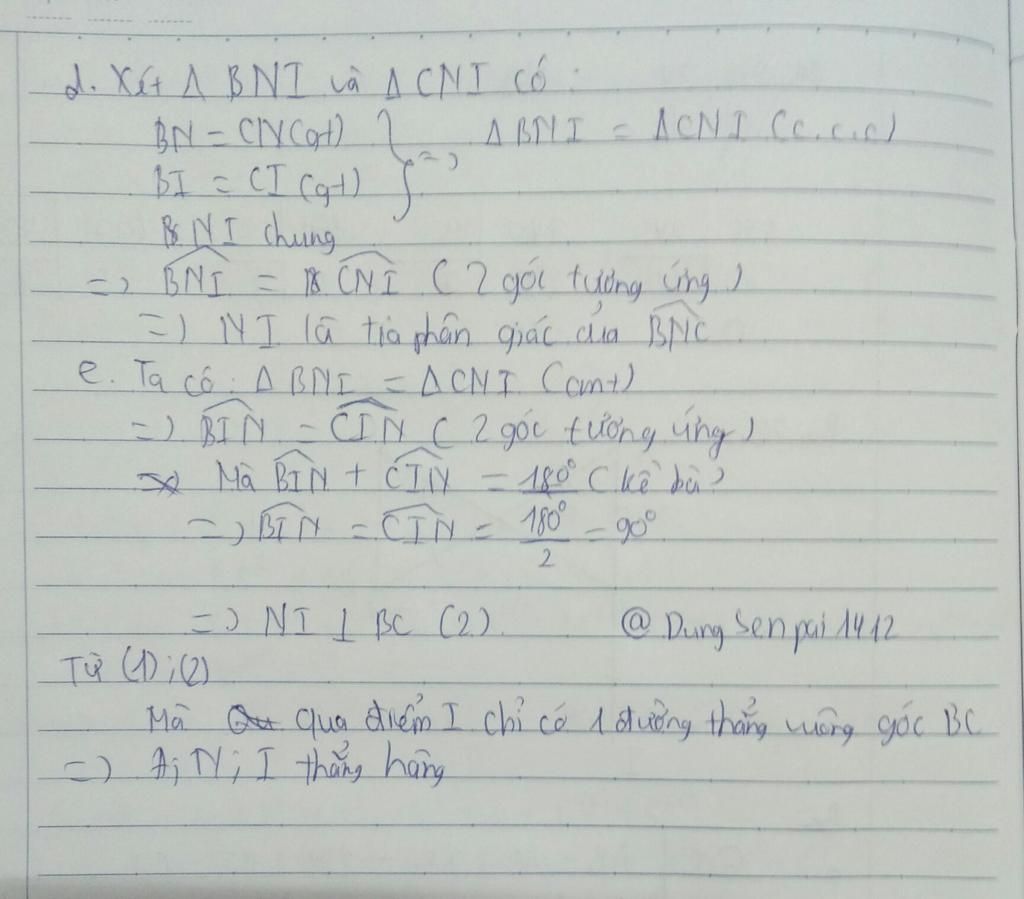 d. Xét Δ BNI và Δ CNI có:
BN = CN (gt) } => Δ BNI = Δ CNI (c.c.c)
BI = CI (gt)
NI chung
=> BNI = CNI (2 góc tương ứng)
=> NI là tia phân giác của BNC
e. Ta có: Δ BNI = Δ CNI (cmt)
=> BIN = CIN (2 góc tương ứng)
Mà BIN + CIN = 180° (kề bù)
=> BIN = CIN = 180°/2 = 90°
=> NI ⊥ BC (2)
@DungSenpai1412
Từ (1);(2)
Mà qua điểm I chỉ có 1 đường thẳng vuông góc BC
=> A; N; I thẳng hàng